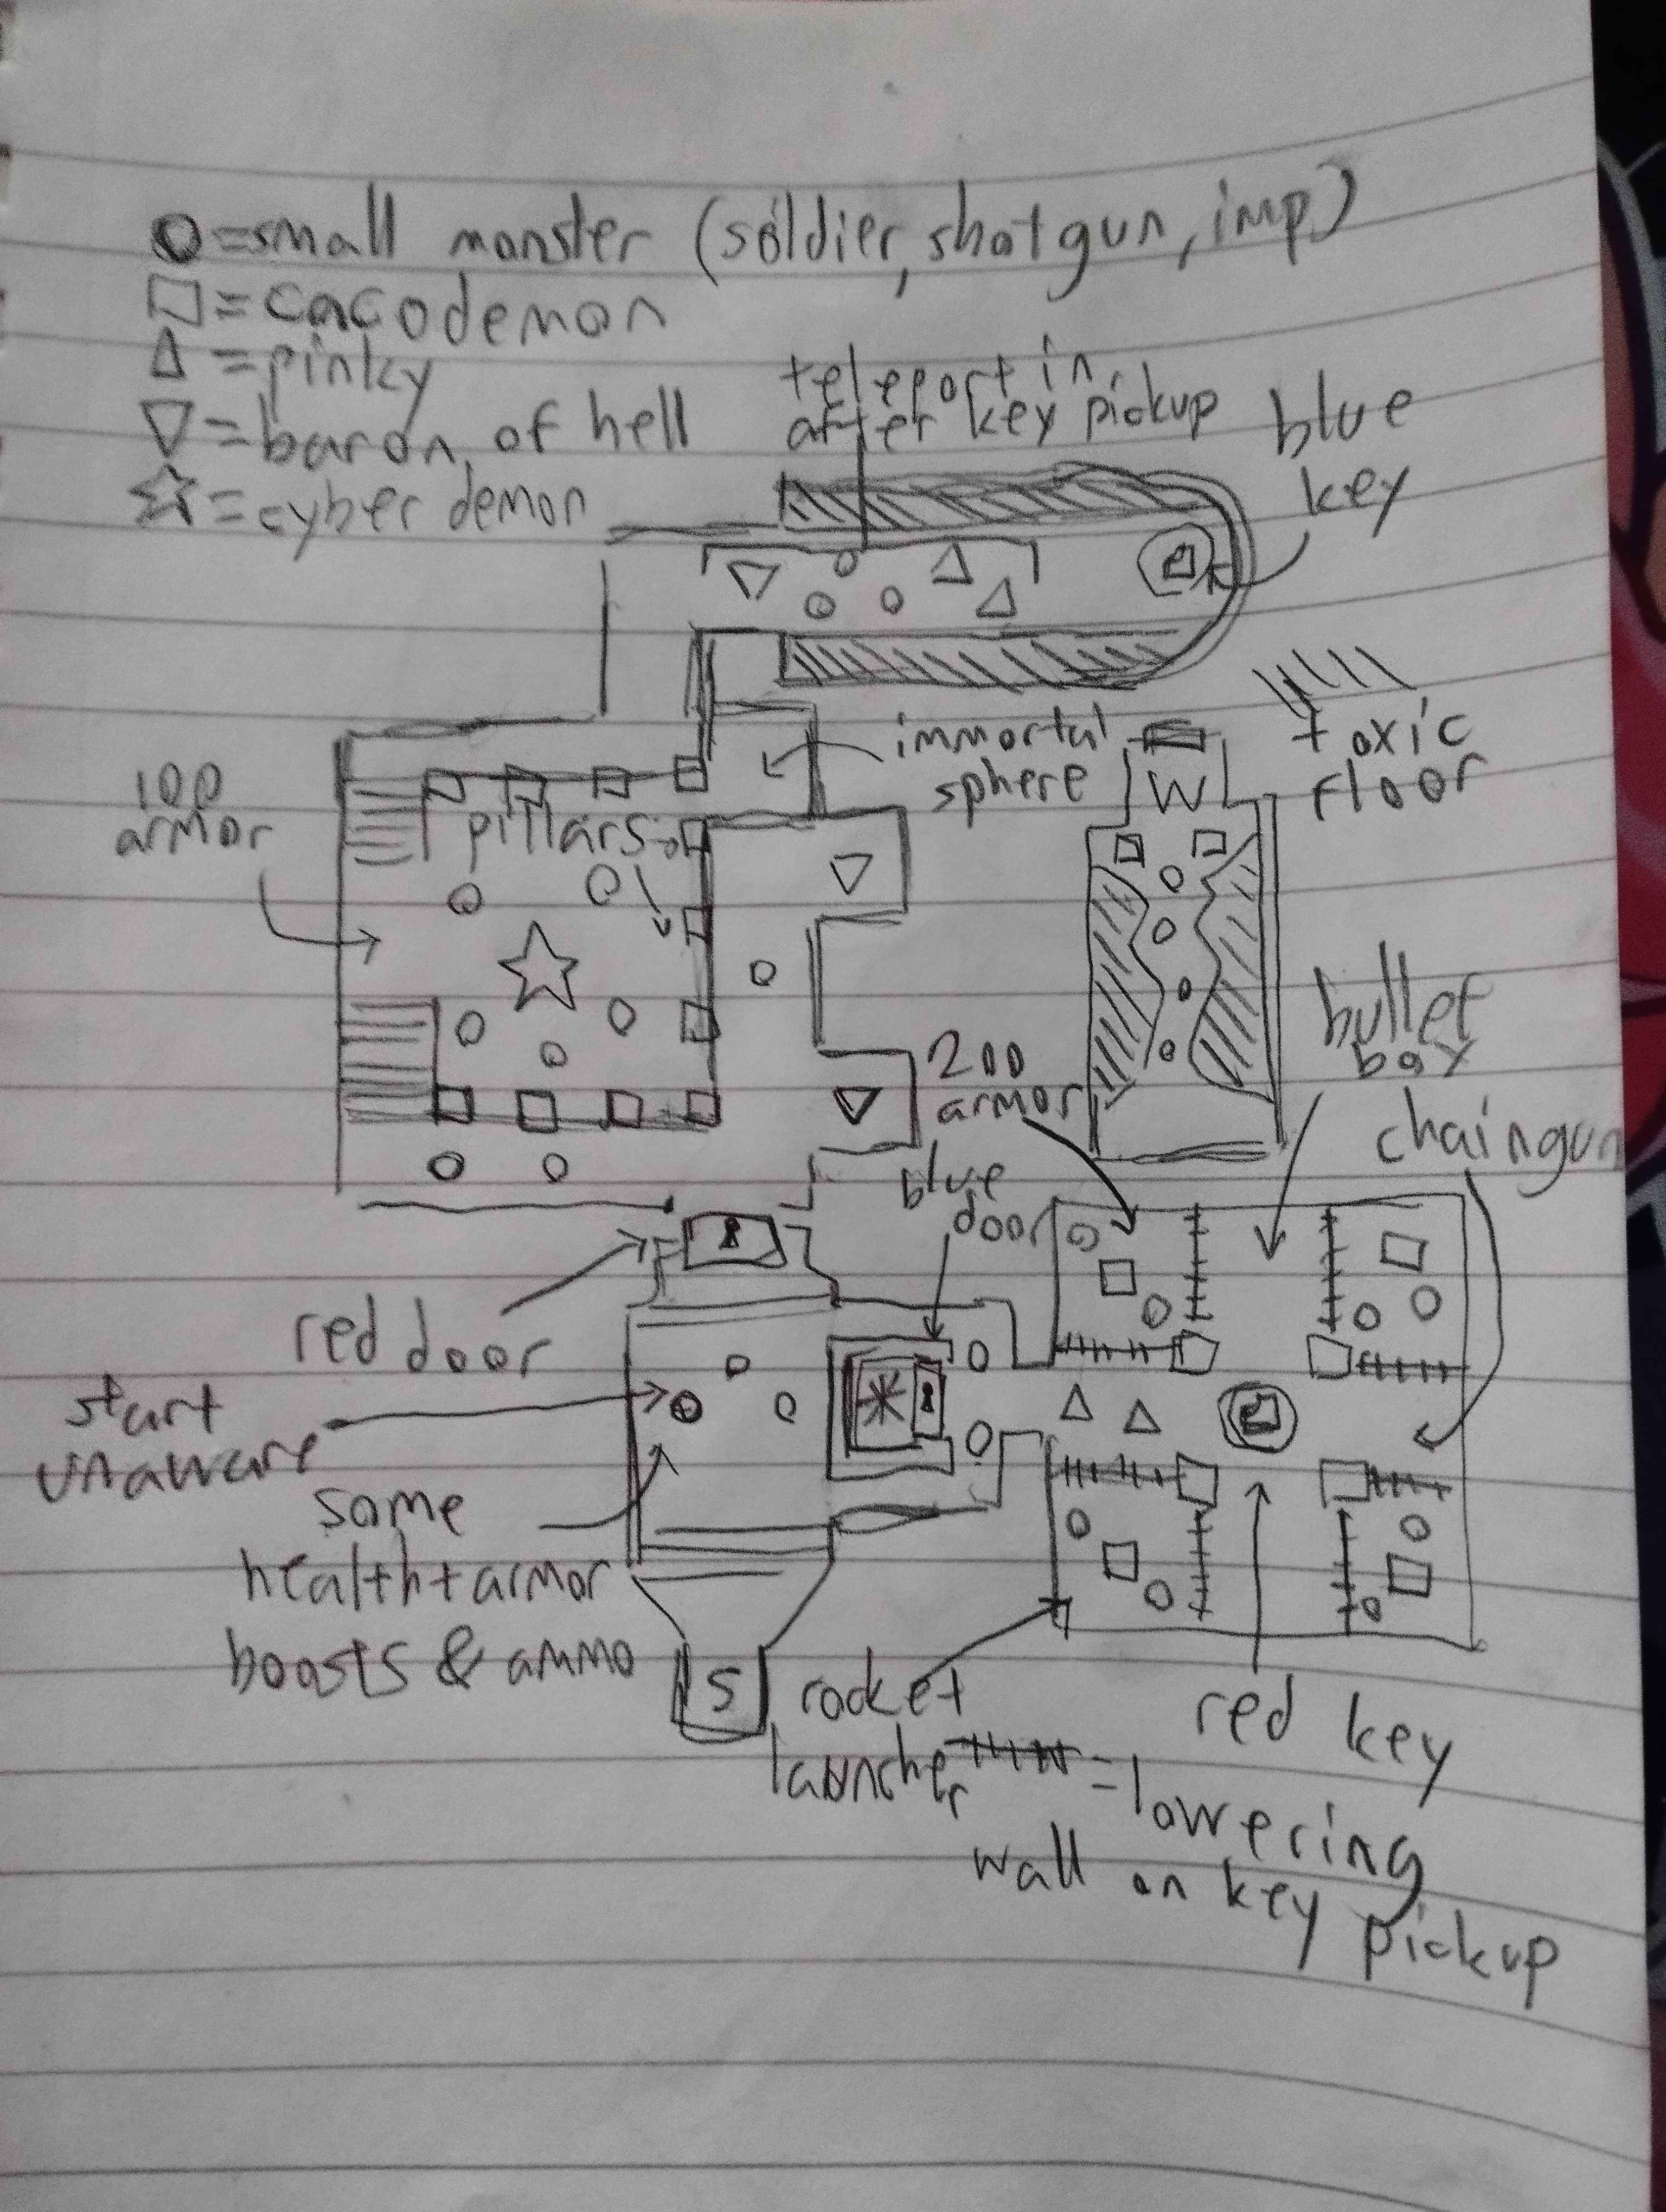 O=small monster (soldier, shotgun, imp)
□=cacodemon
△=pinky
▽=baron of hell
☆=cyber demon
teleport in
after key pickup
blue
key
immortal
sphere
toxic
floor
W
100
armor
pillars
bullet
box
200
armor
chaingun
blue
door
red door
start
unaware
some
health+armor
boosts & ammo
S
rocket
launcher
red key
=lowering
wall on key pickup